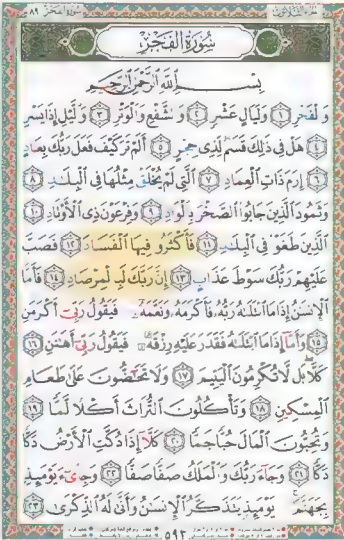 سُورَةُ الفَجْرِ
بِسْمِ اللَّهِ الرَّحْمَٰنِ الرَّحِيمِ
وَالْفَجْرِ ١ وَلَيَالٍ عَشْرٍ ٢ وَالشَّفْعِ وَالْوَتْرِ ٣ وَاللَّيْلِ إِذَا يَسْرِ
٤ هَلْ فِي ذَٰلِكَ قَسَمٌ لِّذِي حِجْرٍ ٥ أَلَمْ تَرَ كَيْفَ فَعَلَ رَبُّكَ بِعَادٍ
٦ إِرَمَ ذَاتِ الْعِمَادِ ٧ الَّتِي لَمْ يُخْلَقْ مِثْلُهَا فِي الْبِلَٰدِ ٨
وَثَمُودَ الَّذِينَ جَابُوا الصَّخْرَ بِالْوَادِ ٩ وَفِرْعَوْنَ ذِي الْأَوْتَادِ ١٠
الَّذِينَ طَغَوْا فِي الْبِلَٰدِ ١١ فَأَكْثَرُوا فِيهَا الْفَسَادَ ١٢ فَصَبَّ
عَلَيْهِمْ رَبُّكَ سَوْطَ عَذَابٍ ١٣ إِنَّ رَبَّكَ لَبِالْمِرْصَادِ ١٤ فَأَمَّا
الْإِنسَٰنُ إِذَا مَا ابْتَلَىٰهُ رَبُّهُ فَأَكْرَمَهُ وَنَعَّمَهُ فَيَقُولُ رَبِّي أَكْرَمَنِ
١٥ وَأَمَّا إِذَا مَا ابْتَلَىٰهُ فَقَدَرَ عَلَيْهِ رِزْقَهُ فَيَقُولُ رَبِّي أَهَٰنَنِ ١٦
كَلَّا بَل لَّا تُكْرِمُونَ الْيَتِيمَ ١٧ وَلَا تَحَٰضُّونَ عَلَىٰ طَعَامِ
الْمِسْكِينِ ١٨ وَتَأْكُلُونَ التُّرَاثَ أَكْلًا لَّمًّا ١٩
وَتُحِبُّونَ الْمَالَ حُبًّا جَمًّا ٢٠ كَلَّا إِذَا دُكَّتِ الْأَرْضُ دَكًّا
دَكًّا ٢١ وَجَاءَ رَبُّكَ وَالْمَلَكُ صَفًّا صَفًّا ٢٢ وَجِا۟يٓءَ يَوْمَئِذٍۭ
بِجَهَنَّمَ يَوْمَئِذٍ يَتَذَكَّرُ الْإِنسَٰنُ وَأَنَّىٰ لَهُ الذِّكْرَىٰ ٢٣
٥٩٣